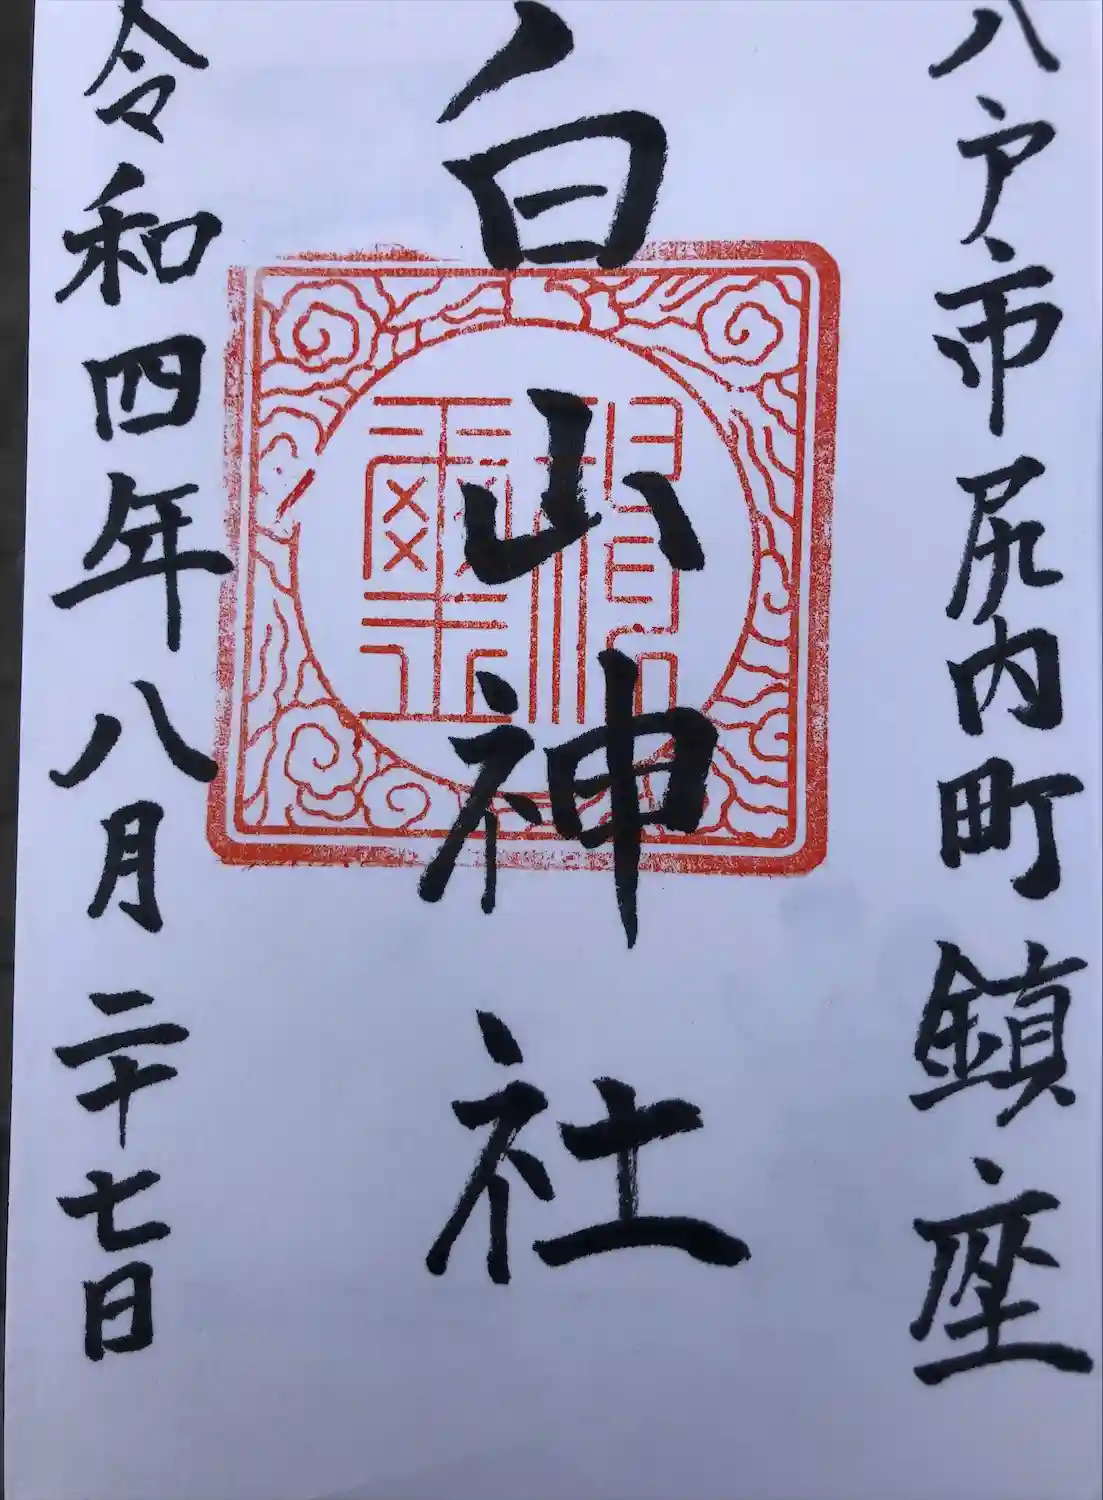 八戸市尻内町鎮座
白山神社
令和四年八月二十七日